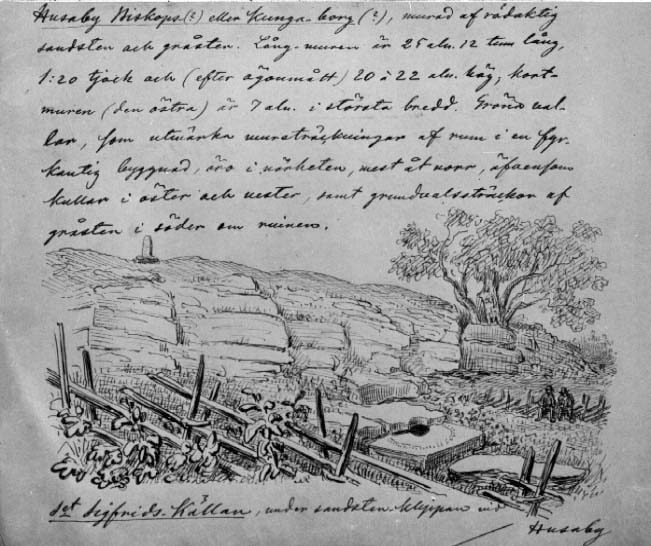 Husaby Biskops(?) eller Kunga-borg (?), murad af rödaktig
sandsten och gråsten. Lång-muren är 25 aln. 12 tum lång,
1:20 tjock och (efter ögonmått) 20 à 22 aln. hög; kort-
muren (den östra) är 7 aln. i största bredd. Gröna val-
lar, som utmärka mursträckningar af rum i en fyr-
kantig byggnad, äro i närheten, mest åt norr, äfvensom
kullar i öster och vester, samt grundvalssträckor af
gråsten i söder om ruinen.
Sct Sigfrids-Källan, under sandstens-klippan vid
Husaby